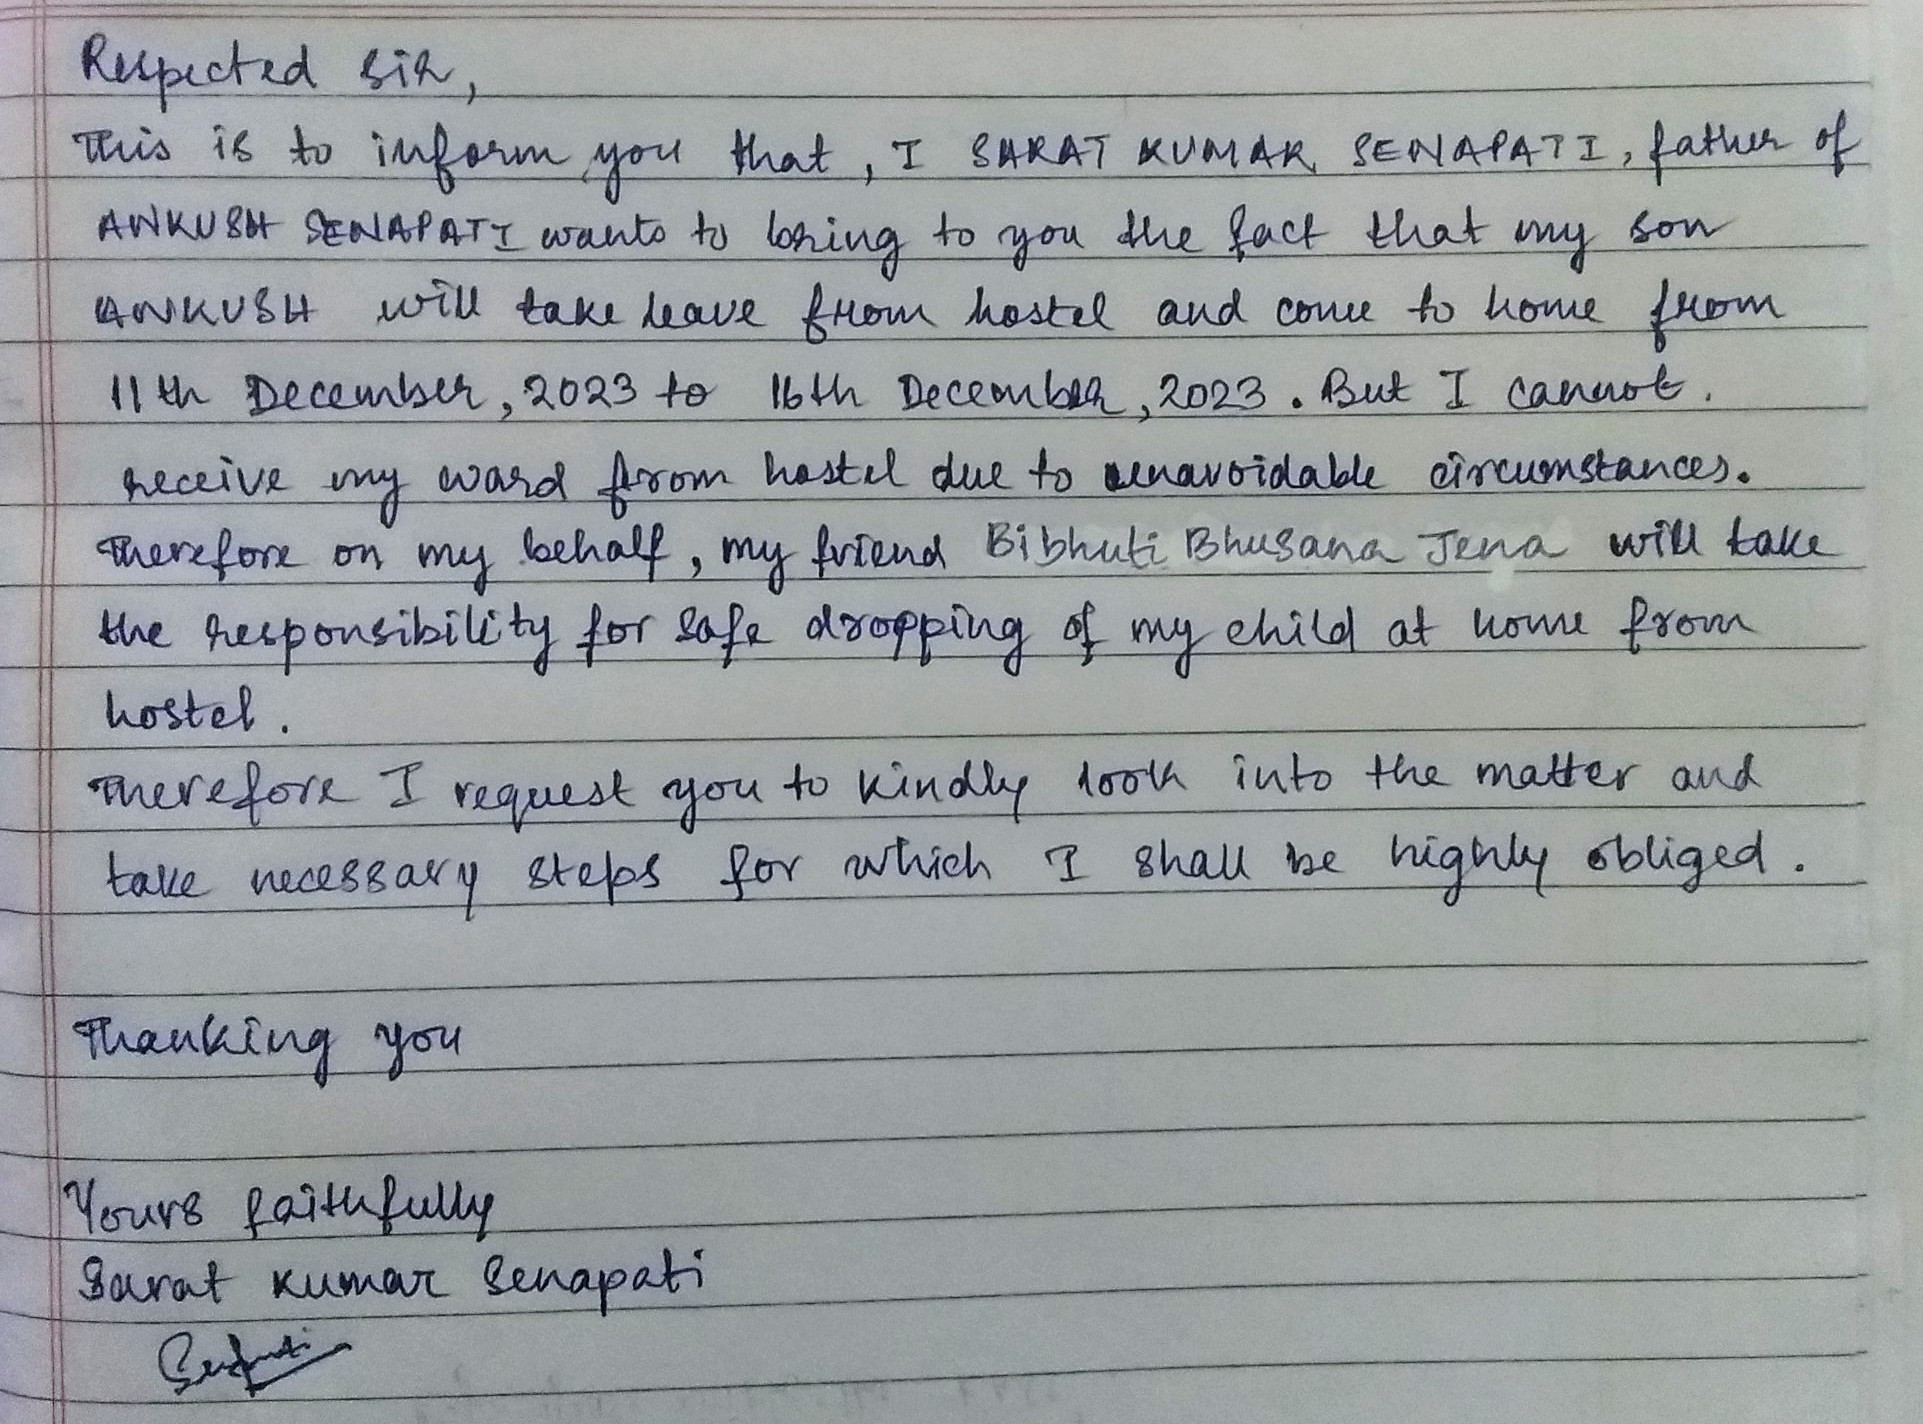 Respected Sir,
This is to inform you that, I SARAT KUMAR SENAPATI, father of
ANKUSH SENAPATI wants to bring to you the fact that my son
ANKUSH will take leave from hostel and come to home from
11th December, 2023 to 16th December, 2023. But I cannot.
receive my ward from hostel due to unavoidable circumstances.
Therefore on my behalf, my friend Bibhuti Bhusana Jena will take
the responsibility for safe dropping of my child at home from
hostel.
Therefore I request you to kindly look into the matter and
take necessary steps for which I shall be highly obliged.
Thanking you
Yours faithfully
Sarat Kumar Senapati